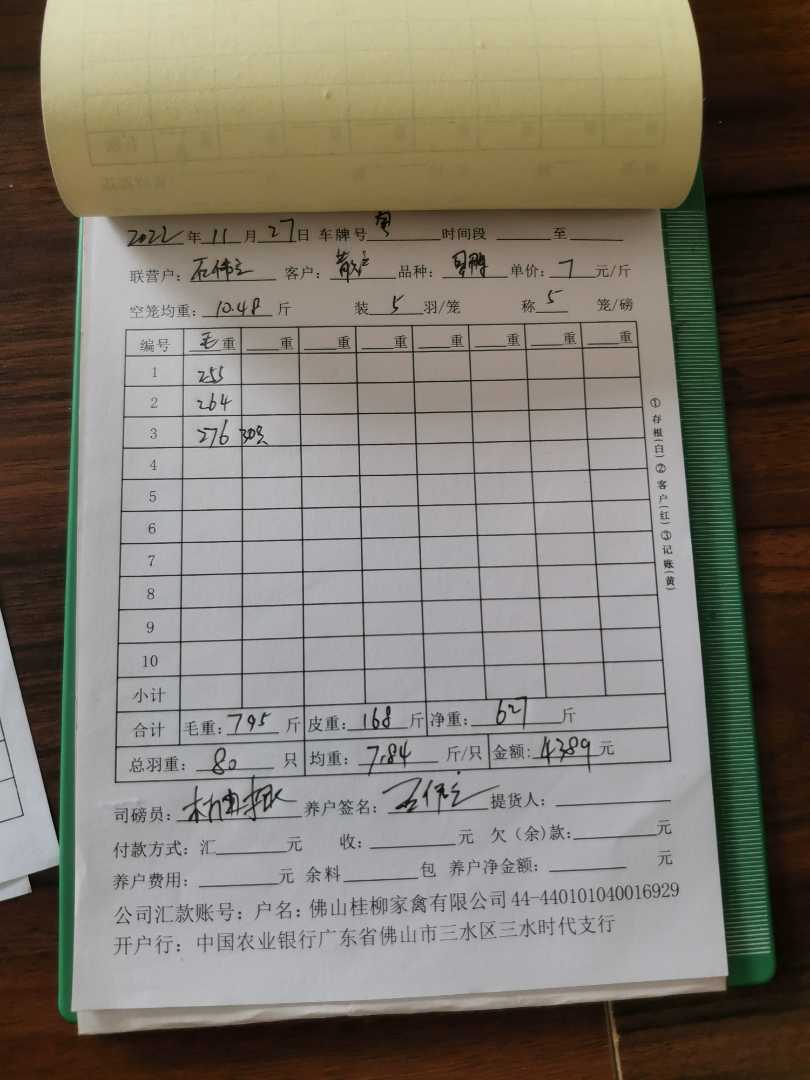 2022年11月27日 车牌号 时间段 至
联营户：石伟立 客户：散户 品种： 单价：7元/斤
空笼均重：10.48斤 装5羽/笼 称5笼/磅
编号 毛重 重 重 重 重 重 重 重
1 255
2 264
3 276 30只
4
5
6
7
8
9
10
小计
合计 毛重：795斤 皮重：168斤 净重：627斤
总羽重：80只 均重：7.84斤/只 金额：4389元
司磅员： 养户签名：石伟立 提货人：
付款方式：汇 元 收： 元 欠（余）款： 元
养户费用： 元 余料 包 养户净金额： 元
公司汇款账号：户名：佛山桂柳家禽有限公司44-440101040016929
开户行：中国农业银行广东省佛山市三水区三水时代支行
①存根(白)②客户(红)③记账(黄)